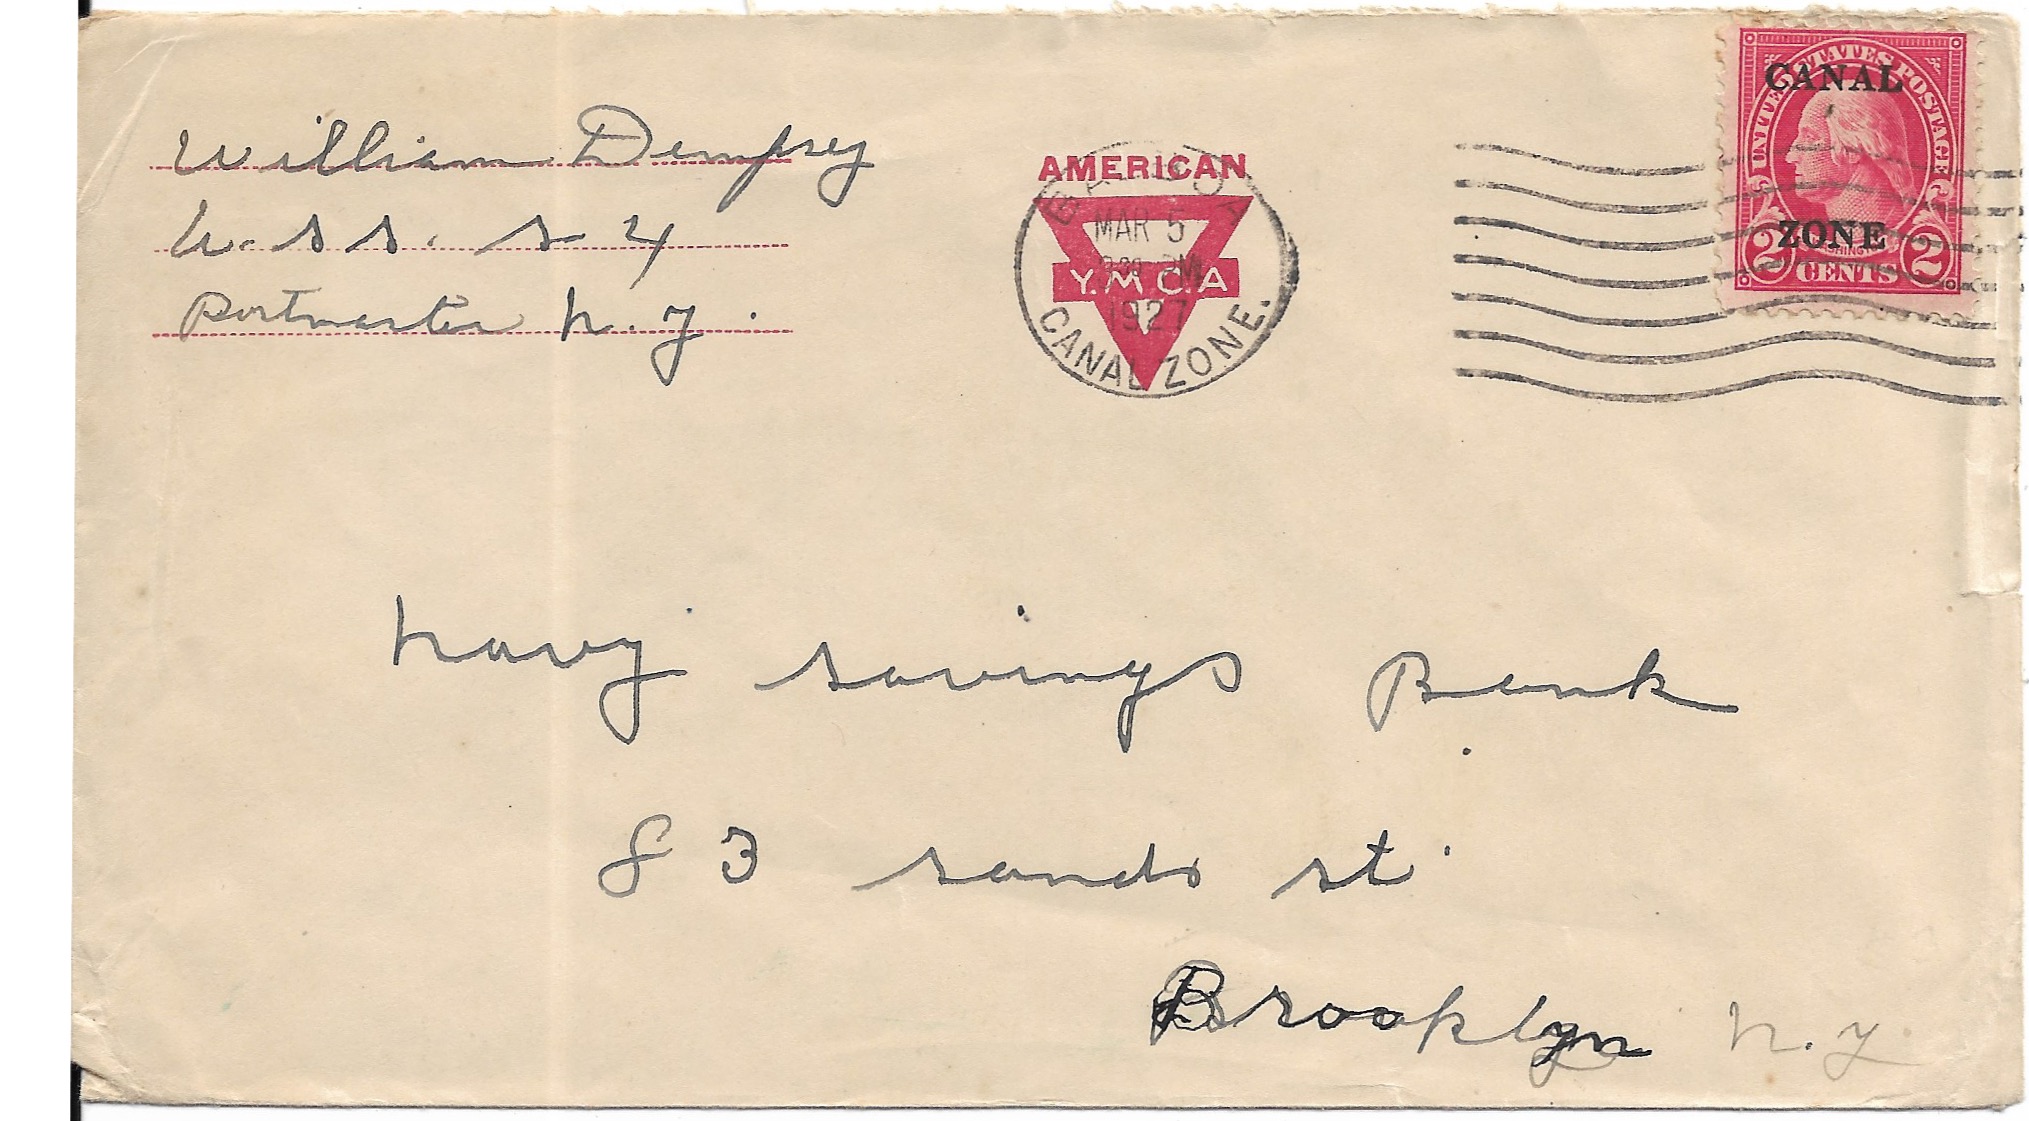 William Dempsey
U.S.S. S-4
Postmaster N.Y.
AMERICAN
Y.M.C.A
BALBOA
MAR 5
PM
1927
CANAL ZONE.
UNITED STATES POSTAGE
CANAL
ZONE
2 CENTS 2
Navy Savings Bank
83 Sands St.
Brooklyn N.Y